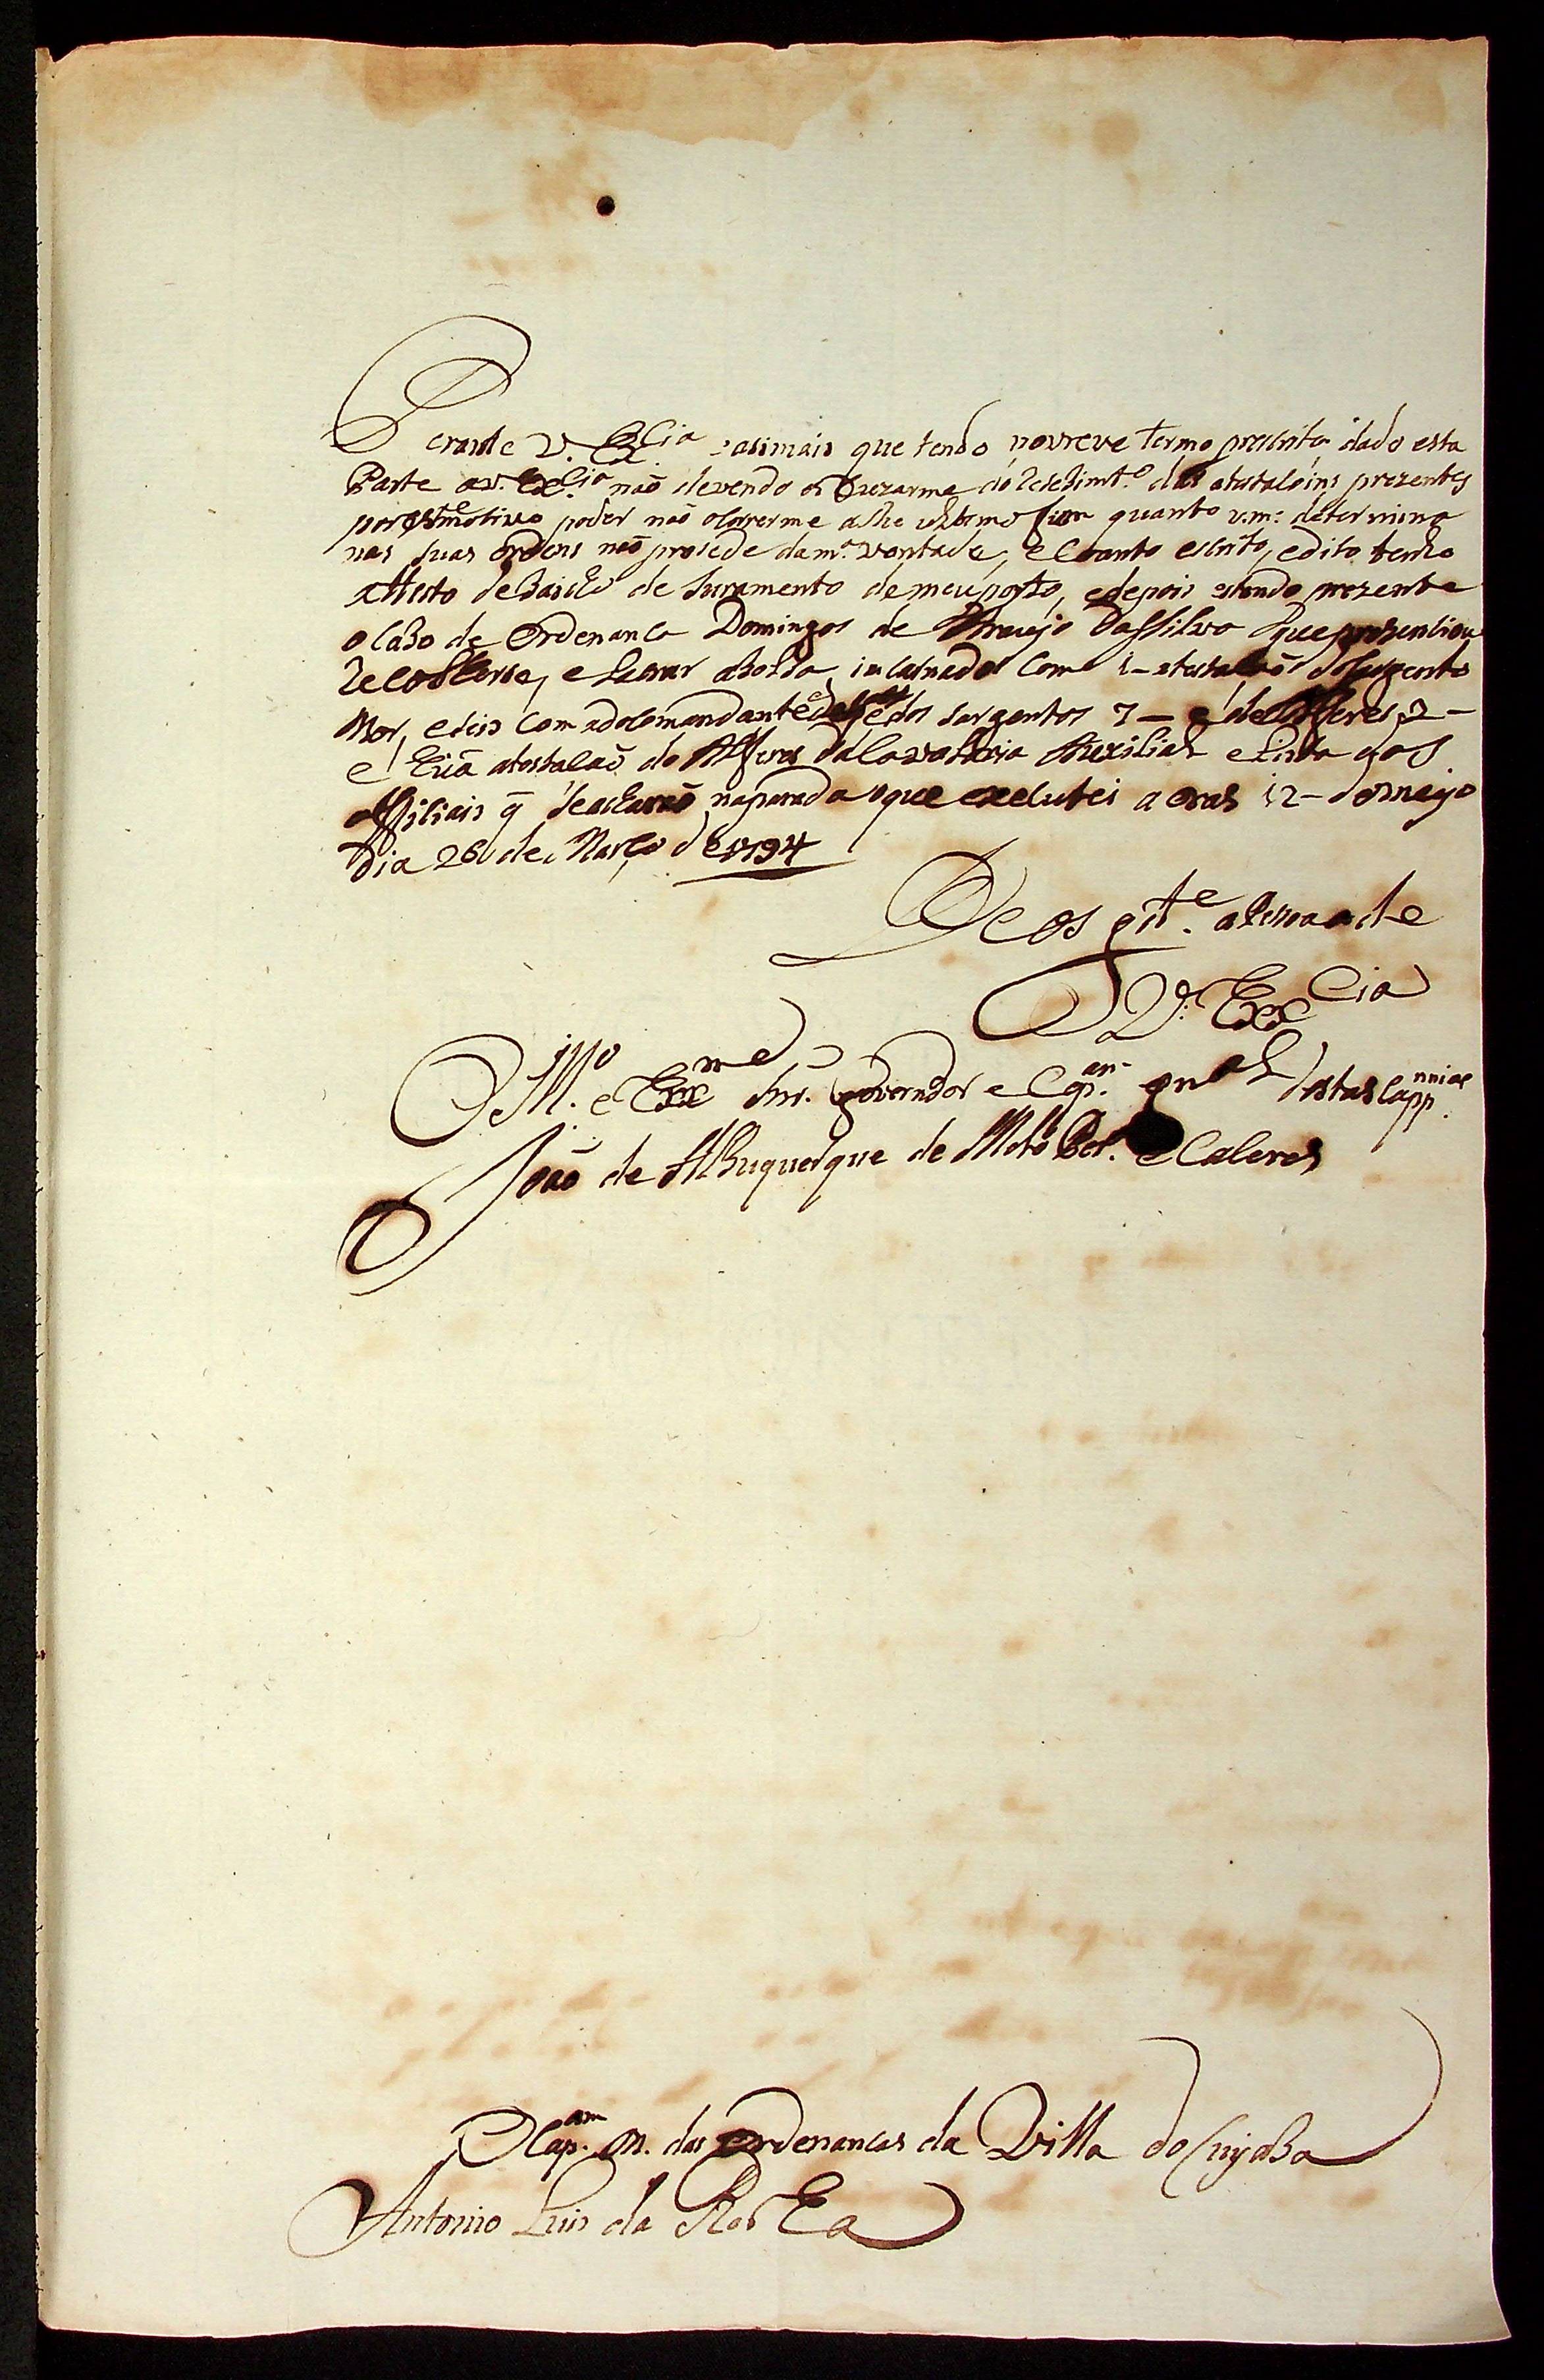 Perante V. Ex.cia easimais que tendo nobreve termo prescrito dado esta
Parte av. Ex.cia não devendo os ... do Resebimt.º das atestaloins prezentes
por este motivo poder não oCorrerme athe ultimo fim quanto v.m. determina
nas suas Ordens não prosede dam.ª vontade, e Coanto escrito, edito tenho
Attesto debaicho de Juramento de meu posto, edepois estando prezente
o Cabo de Ordenanca Domingos de Araujo Dassilva que prezenciou
Recolherse, e Lacrar aborda, incasnado Com 1 - atestacão do Sargento
Mor, e dois Com adoComandante edos Sargentos 7 - e de Alferes 2 -
e huã atestacaõ do Alferes da Cavalaria Auxiliar e Lista dos
offiSiais q̃ Seacharão naparada oque execlutei a oras 12 - domeyo
Dia 26 de Março de 1794
Deos gd.e aPessoa de
V. Exx.cia
Ill.mo e Exx.mo Snr. Governador e Cap.an Gnal destas Capp.nnias
João de Albuquerque de Mello Per.ª e Caceres
O Cap.am M. das Ordenancas da Villa do Cuyaba
Antonio Luis da RoxEa